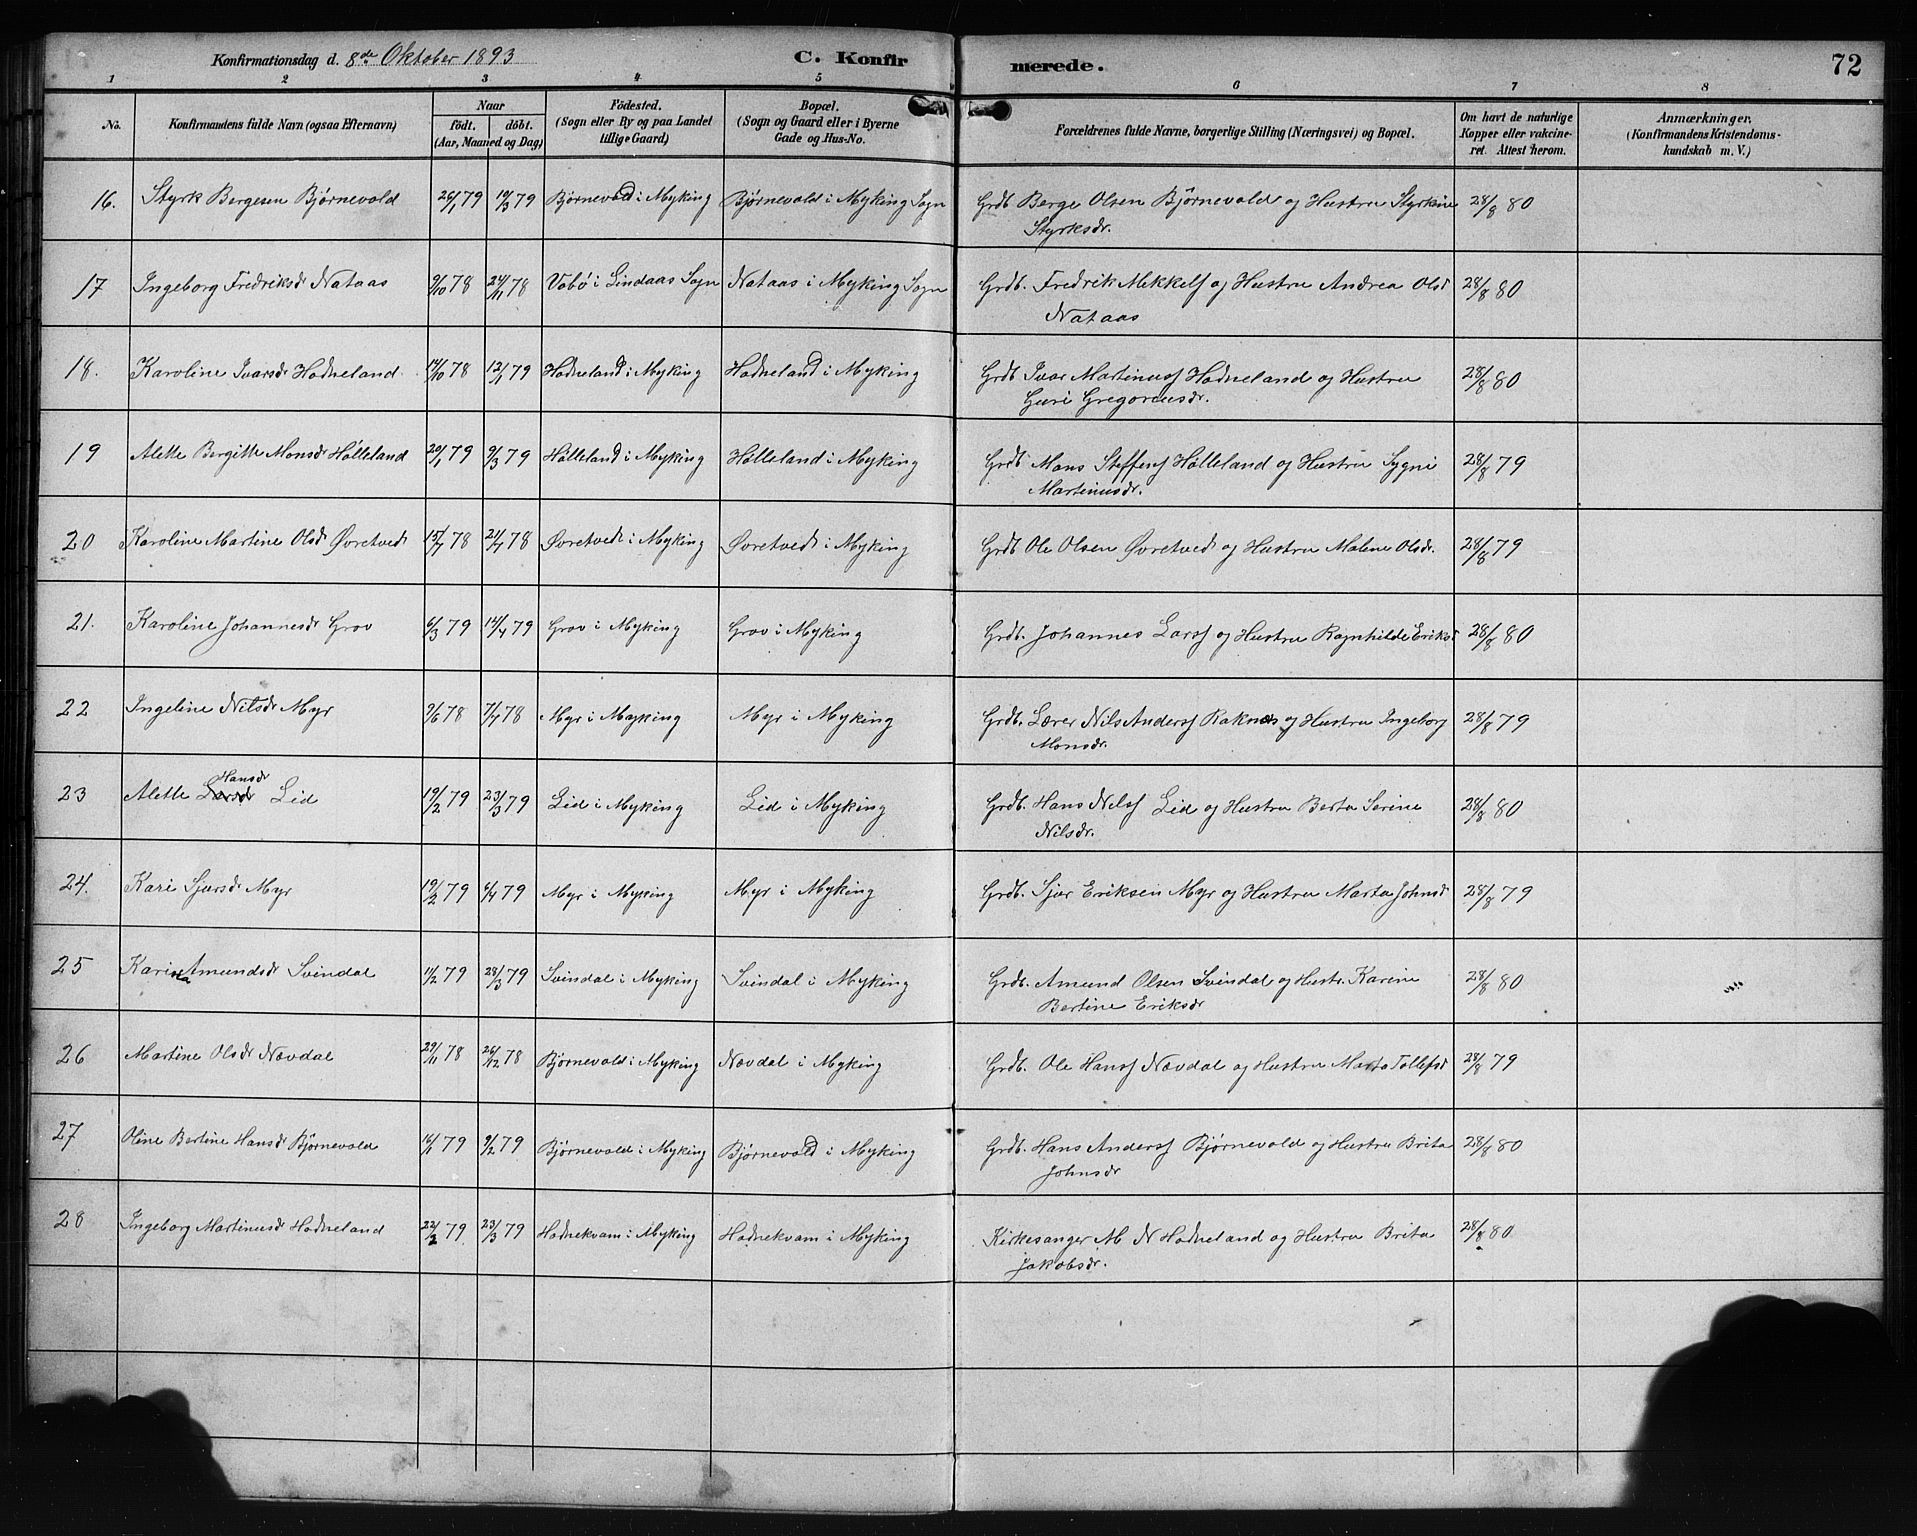 Konfirmationsdag d. 8de Oktober 1893 C. Konfirmerede. 72
1 2 3 4 5 6 7 8
No. Konfirmandens fulde Navn (ogsaa Efternavn) Naar født. døbt. (Aar, Maaned og Dag) Födested. (Sogn eller By og paa Landet tillige Gaard) Bopæl. (Sogn og Gaard eller i Byerne Gade og Hus-No. Forældrenes fulde Navne, borgerlige Stilling (Næringsvei) og Bopæl. Om havt de naturlige Kopper eller vakcineret. Attest herom. Anmærkninger. (Konfirmandens Kristendomskundskab m. V.)
16. Styrk Bergesen Bjørnevold 26/1 79 10/3 79 Bjørnevold i Myking Bjørnevold i Myking Sogn Grdb. Berge Olsen Bjørnevold og Hustru Styrkine 28/8 80
Styrksdr.
17 Ingeborg Fredriksdr Nataas 9/10 78 24/11 78 Vabø i Lindaas Sogn Nataas i Myking Sogn Grdb. Fredrik Mekkels og Hustru Andrea Olsd 28/8 80
Nataas
18. Karoline Ivarsdr Hodneland 14/10 78 12/1 79 Hodneland i Myking Hodneland i Myking Grdb Ivar Martinuss Hodneland og Hustru 28/8 80
Guri Gregoriusdr.
19 Alette Bergitte Monsdr Hølleland 20/1 79 9/3 79 Hølleland i Myking Hølleland i Myking Grdb Mons Steffens Hølleland og Hustru Sygni 28/8 79
Martinusdr.
20 Karoline Martine Olsdr Øvretved 15/7 78 21/7 78 Øvretved i Myking Øvretved i Myking Grdb Ole Olsen Øvretved og Hustru Malene Olsdr. 28/8 79
21. Karoline Johannesdr Grov 6/3 79 14/4 79 Grov i Myking Grov i Myking Grdb. Johannes Larss og Hustru Ragnhilde Eriksd 28/8 80
22 Ingeline Nilsdr Myr 9/6 78 7/7 78 Myr i Myking Myr i Myking Grdb. Lærer Nils Anderss Raknes og Hustru Ingeborg 28/8 79
Monsdr.
23 Alette Larsdr Hansdr Lid 19/2 79 23/3 79 Lid i Myking Lid i Myking Grdb. Hans Nilss Lid og Hustru Berta Serine 28/8 80
Nilsdr.
24. Kari Sjursdr Myr 19/2 79 6/4 79 Myr i Myking Myr i Myking Grdb. Sjur Eriksen Myr og Hustru Marta Johnsd 28/8 79
25 Karina Amundsdr Svindal 11/2 79 28/3 79 Svindal i Myking Svindal i Myking Grdb. Amund Olsen Svindal og Hustr. Karine 28/8 80
Bertine Eriksdr
26 Martine Olsdr Nævdal 29/11 78 26/12 78 Bjørnevold i Myking Nævdal i Myking Grdb. Ole Hanss Nævdal og Hustru Marta Tollefsd 28/8 79
27 Oline Bertine Hansdr Bjørnevold 16/1 79 9/2 79 Bjørnevold i Myking Bjørnevold i Myking Grdb. Hans Anderss Bjørnevold og Hustru Brita 28/8 80
Johnsdr
28 Ingeborg Martinusdr Hodneland 22/2 79 23/3 79 Hodnekvam i Myking Hodnekvam i Myking Kirkesanger M N Hodneland og Hustru Brita 28/8 80
Jakobsdr.